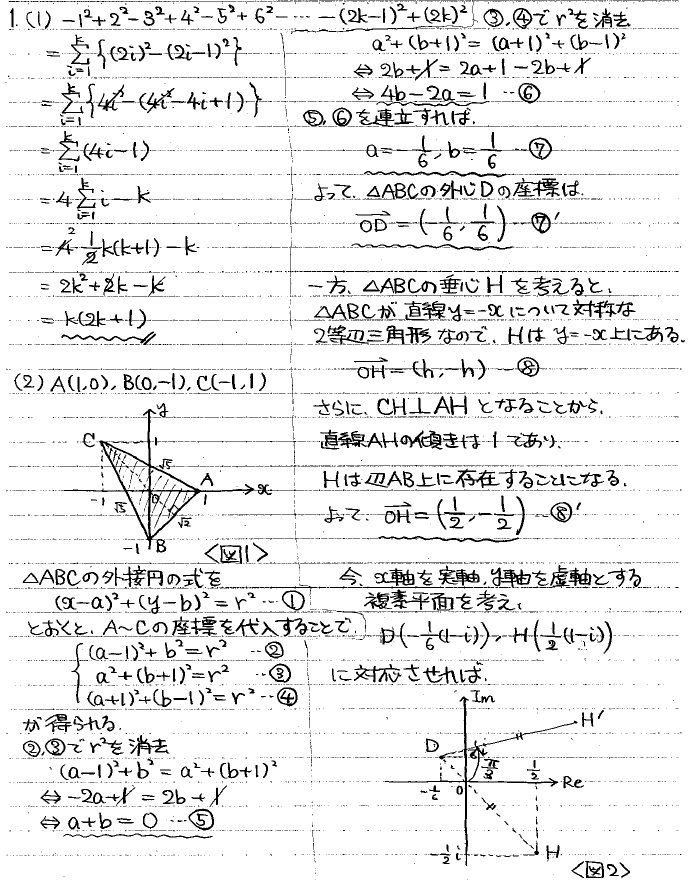 1. (1) -1²+2²-3²+4²-5²+6²- ⋯ -(2k-1)²+(2k)²
= Σ_{i=1}^{k} {(2i)²-(2i-1)²}
= Σ_{i=1}^{k} {4i²-(4i²-4i+1)}
= Σ_{i=1}^{k} (4i-1)
= 4Σ_{i=1}^{k} i - k
= 4·1/2 k(k+1) - k
= 2k²+2k-k
= k(2k+1)
(2) A(1,0), B(0,-1), C(-1,1)
y
C
1
√5
A
-1
0
1
x
√5
√2
-1
B
<図1>
△ABCの外接円の式を
(x-a)²+(y-b)²=r² …①
とおくと、A~Cの座標を代入することで、
(a-1)²+b²=r² …②
a²+(b+1)²=r² …③
(a+1)²+(b-1)²=r² …④
が得られる。
②,③でr²を消去
(a-1)²+b²=a²+(b+1)²
⇔ -2a+1=2b+1
⇔ a+b=0 …⑤
③,④でr²を消去
a²+(b+1)²=(a+1)²+(b-1)²
⇔ 2b+1=2a+1-2b+1
⇔ 4b-2a=1 …⑥
⑤,⑥を連立すれば、
a=-1/6, b=1/6 …⑦
よって、△ABCの外心Dの座標は、
OD=(-1/6, 1/6) …⑦'
一方、△ABCの垂心Hを考えると、
△ABCが直線y=-xについて対称な
2等辺三角形なので、Hはy=-x上にある。
OH=(h,-h) …⑧
さらに、CH⊥AHとなることから、
直線AHの傾きは1であり、
Hは辺AB上に存在することになる。
よって、OH=(1/2, -1/2) …⑧'
今、x軸を実軸、y軸を虚軸とする
複素平面を考え、
D(-1/6(1-i)), H(1/2(1-i))
に対応させれば、
Im
H'
D
π/3
1/2
0
Re
-1/2 i
H
<図2>